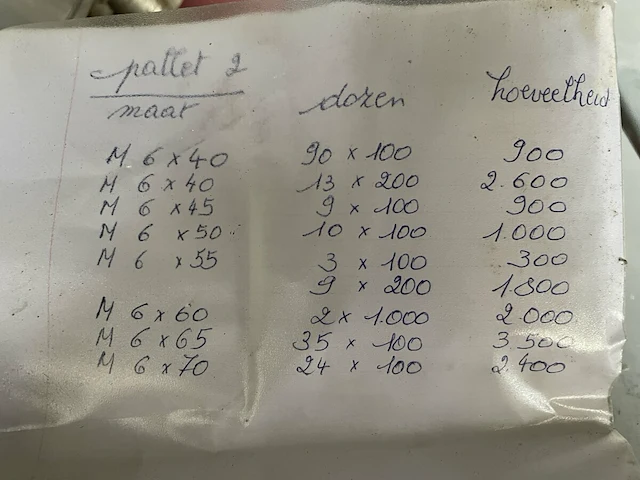 pallet 2
maat dozen hoeveelheid
M 6 x 40 90 x 100 900
M 6 x 40 13 x 200 2.600
M 6 x 45 9 x 100 900
M 6 x 50 10 x 100 1.000
M 6 x 55 3 x 100 300
9 x 200 1.800
M 6 x 60 2 x 1.000 2.000
M 6 x 65 35 x 100 3.500
M 6 x 70 24 x 100 2.400